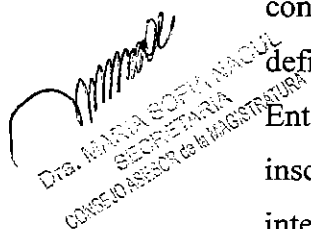 con
defi
Ent
insc
inte
Dra. MARIA SOFIA NACUL
SECRETARIA
CONSEJO ASESOR de la MAGISTRATURA